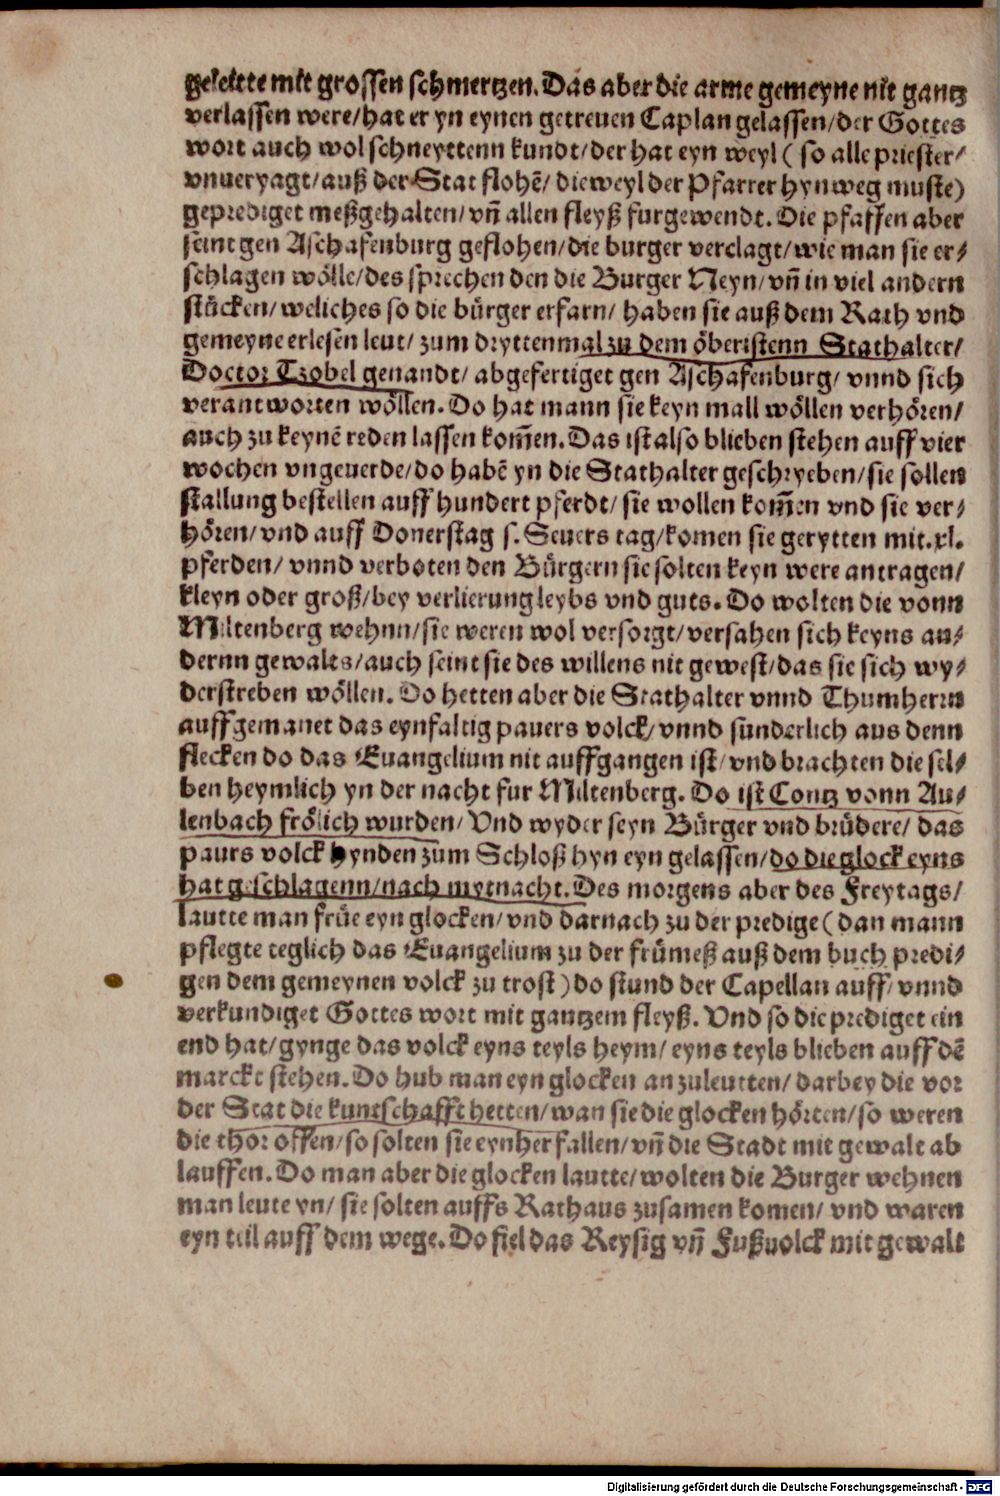 geleitte mit grossen schmertzen. Das aber die arme gemeyne nit gantz
verlassen were/ hat er yn eynen getreuen Caplan gelassen/ der Gottes
wort auch wol schneyttenn kundt/ der hat eyn weyl ( so alle priester/
vnueryagt/ auß der Stat flohē/ dieweyl der Pfarrer hynweg muste)
geprediget meßgehalten/ vñ allen fleyß furgewendt. Die pfaffen aber
seint gen Aschafenburg geflohen/ die burger verclagt/ wie man sie er-
schlagen wölle/ des sprechen den die Burger Neyn/ vñ in viel andern
stücken/ weliches so die bürger erfarn/ haben sie auß dem Rath vnd
gemeyne erlesen leut/ zum dryttenmal zu dem öberistenn Stathalter/
Doctor Tzobel genandt/ abgefertiget gen Aschafenburg/ vnnd sich
verantworten wöllen. Do hat mann sie keyn mall wöllen verhören/
auch zu keynē reden lassen kom̄en. Das ist also blieben stehen auff vier
wochen vngeuerde/ do habē yn die Stathalter geschryeben/ sie sollen
stallung bestellen auff hundert pferdt/ sie wollen kom̄en vnd sie ver-
hören/ vnd auff Donerstag s. Seuers tag/ komen sie gerytten mit .xl.
pferden/ vnnd verboten den Bürgern sie solten keyn were antragen/
kleyn oder groß/ bey verlierung leybs vnd guts. Do wolten die vonn
Miltenberg wehnn/ sie weren wol versorgt/ versahen sich keyns an-
dernn gewalts/ auch seint sie des willens nit gewest/ das sie sich wy-
derstreben wöllen. Do hetten aber die Stathalter vnnd Thumherrn
auffgemanet das eynfaltig pauers volck/ vnnd sunderlich aus denn
flecken do das Euangelium nit auffgangen ist/ vnd brachten die sel-
ben heymlich yn der nacht fur Miltenberg. Do ist Contz vonn Au-
lenbach frölich wurden/ Vnd wyder seyn Bürger vnd brüdere/ das
paurs volck hynden zum Schloß hyn eyn gelassen/ do die glock eyns
hat geschlagenn/ nach mytnacht. Des morgens aber des Freytags/
lautte man früe eyn glocken/ vnd darnach zu der predige ( dan mann
pflegte teglich das Euangelium zu der frümeß auß dem buch predi-
gen dem gemeynen volck zu trost ) do stund der Capellan auff/ vnnd
verkundiget Gottes wort mit gantzem fleyß. Vnd so die prediget ein
end hat/ gynge das volck eyns teyls heym/ eyns teyls blieben auff dē
marckt stehen. Do hub man eyn glocken an zuleutten/ darbey die vor
der Stat die kuntschafft hetten/ wan sie die glocken hörten/ so weren
die thor offen/ so solten sie eynher fallen/ vñ die Stadt mit gewalt ab
lauffen. Do man aber die glocken lautte/ wolten die Burger wehnen
man leute yn/ sie solten auffs Rathaus zusamen komen/ vnd waren
eyn teil auff dem wege. Do fiel das Reysig vñ Fußuolck mit gewalt
Digitalisierung gefördert durch die Deutsche Forschungsgemeinschaft - DFG